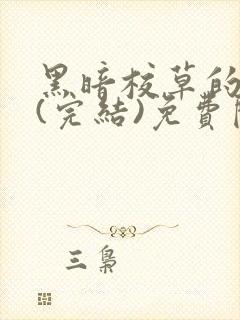 黑暗校草的
(完結)免費
三梟